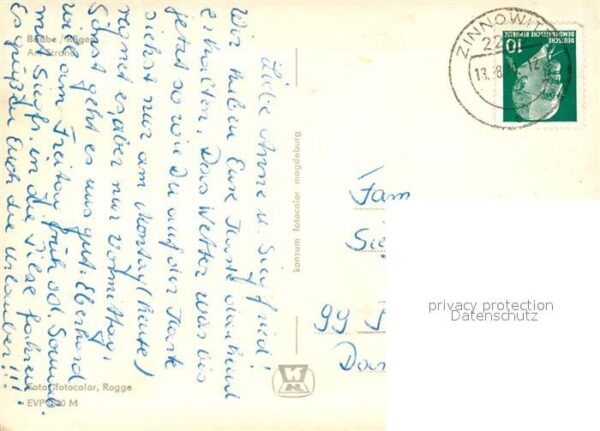 Baabe Rügen
Am Strand
Liebe Anne u. Siegfried!
Wir haben Eure Karte dankend
erhalten. Das Wetter war bis
jetzt so wie Du auf der Karte
siehst nur am Montag (heute)
regnet es aber nur Vormittag.
Sonst geht es uns gut. Eberhard
will am Freitag früh od. Sonnab.
m. Siegfr. in die Pilze fahren.
Es grüßen Euch die Urlauber!!!
Foto: fotocolor, Rogge
EVP M
konsum fotocolor magdeburg
ZINNOWITZ
DEUTSCHE
DEMOKRATISCHE REPUBLIK
10
Fam
Sie
99
privacy protection
Datenschutz